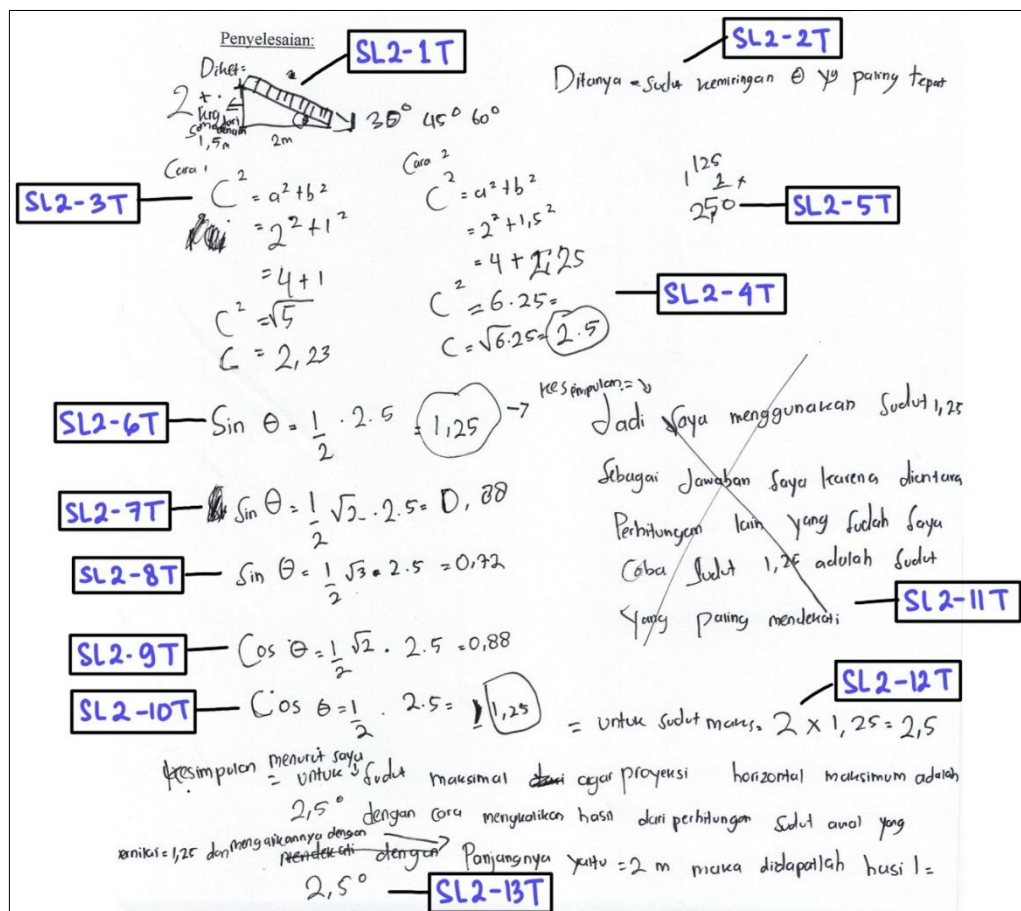 Penyelesaian:
SL2-1T
SL2-2T
Diket=
Ditanya = Sudut kemiringan θ yg paling tepat
2
1,5m
2m
30° 45° 60°
Cara 1
Cara 2
SL2-3T
C² = a²+b²
= 2²+1²
= 4+1
C² = √5
C = 2,23
C² = a²+b²
= 2²+1,5²
= 4+2,25
C² = 6.25=
C = √6.25= 2.5
SL2-4T
125
2 x
250
SL2-5T
SL2-6T
Sin θ = 1/2 . 2.5 = 1,25 →
SL2-7T
Sin θ = 1/2 √2 . 2.5 = 0,88
SL2-8T
Sin θ = 1/2 √3 . 2.5 = 0,72
SL2-9T
Cos θ = 1/2 √2 . 2.5 = 0,88
SL2-10T
Cos θ = 1/2 . 2.5 = 1,25
Kesimpulan =
Jadi Saya menggunakan Sudut 1,25
Sebagai Jawaban Saya karena diantara
Perhitungan lain yang Sudah Saya
Coba Sudut 1,25 adalah Sudut
Yang paling mendekati
SL2-11T
SL2-12T
= untuk sudut maks= 2 x 1,25 = 2,5
Kesimpulan menurut saya
= untuk Sudut maksimal agar proyeksi horizontal maksimum adalah
2,5° dengan cara mengkalikan hasil dari perhitungan Sudut awal yang
bernilai = 1,25 dan mengalikannya dengan Panjangnya yaitu = 2 m maka didapatlah hasil =
2,5°
SL2-13T